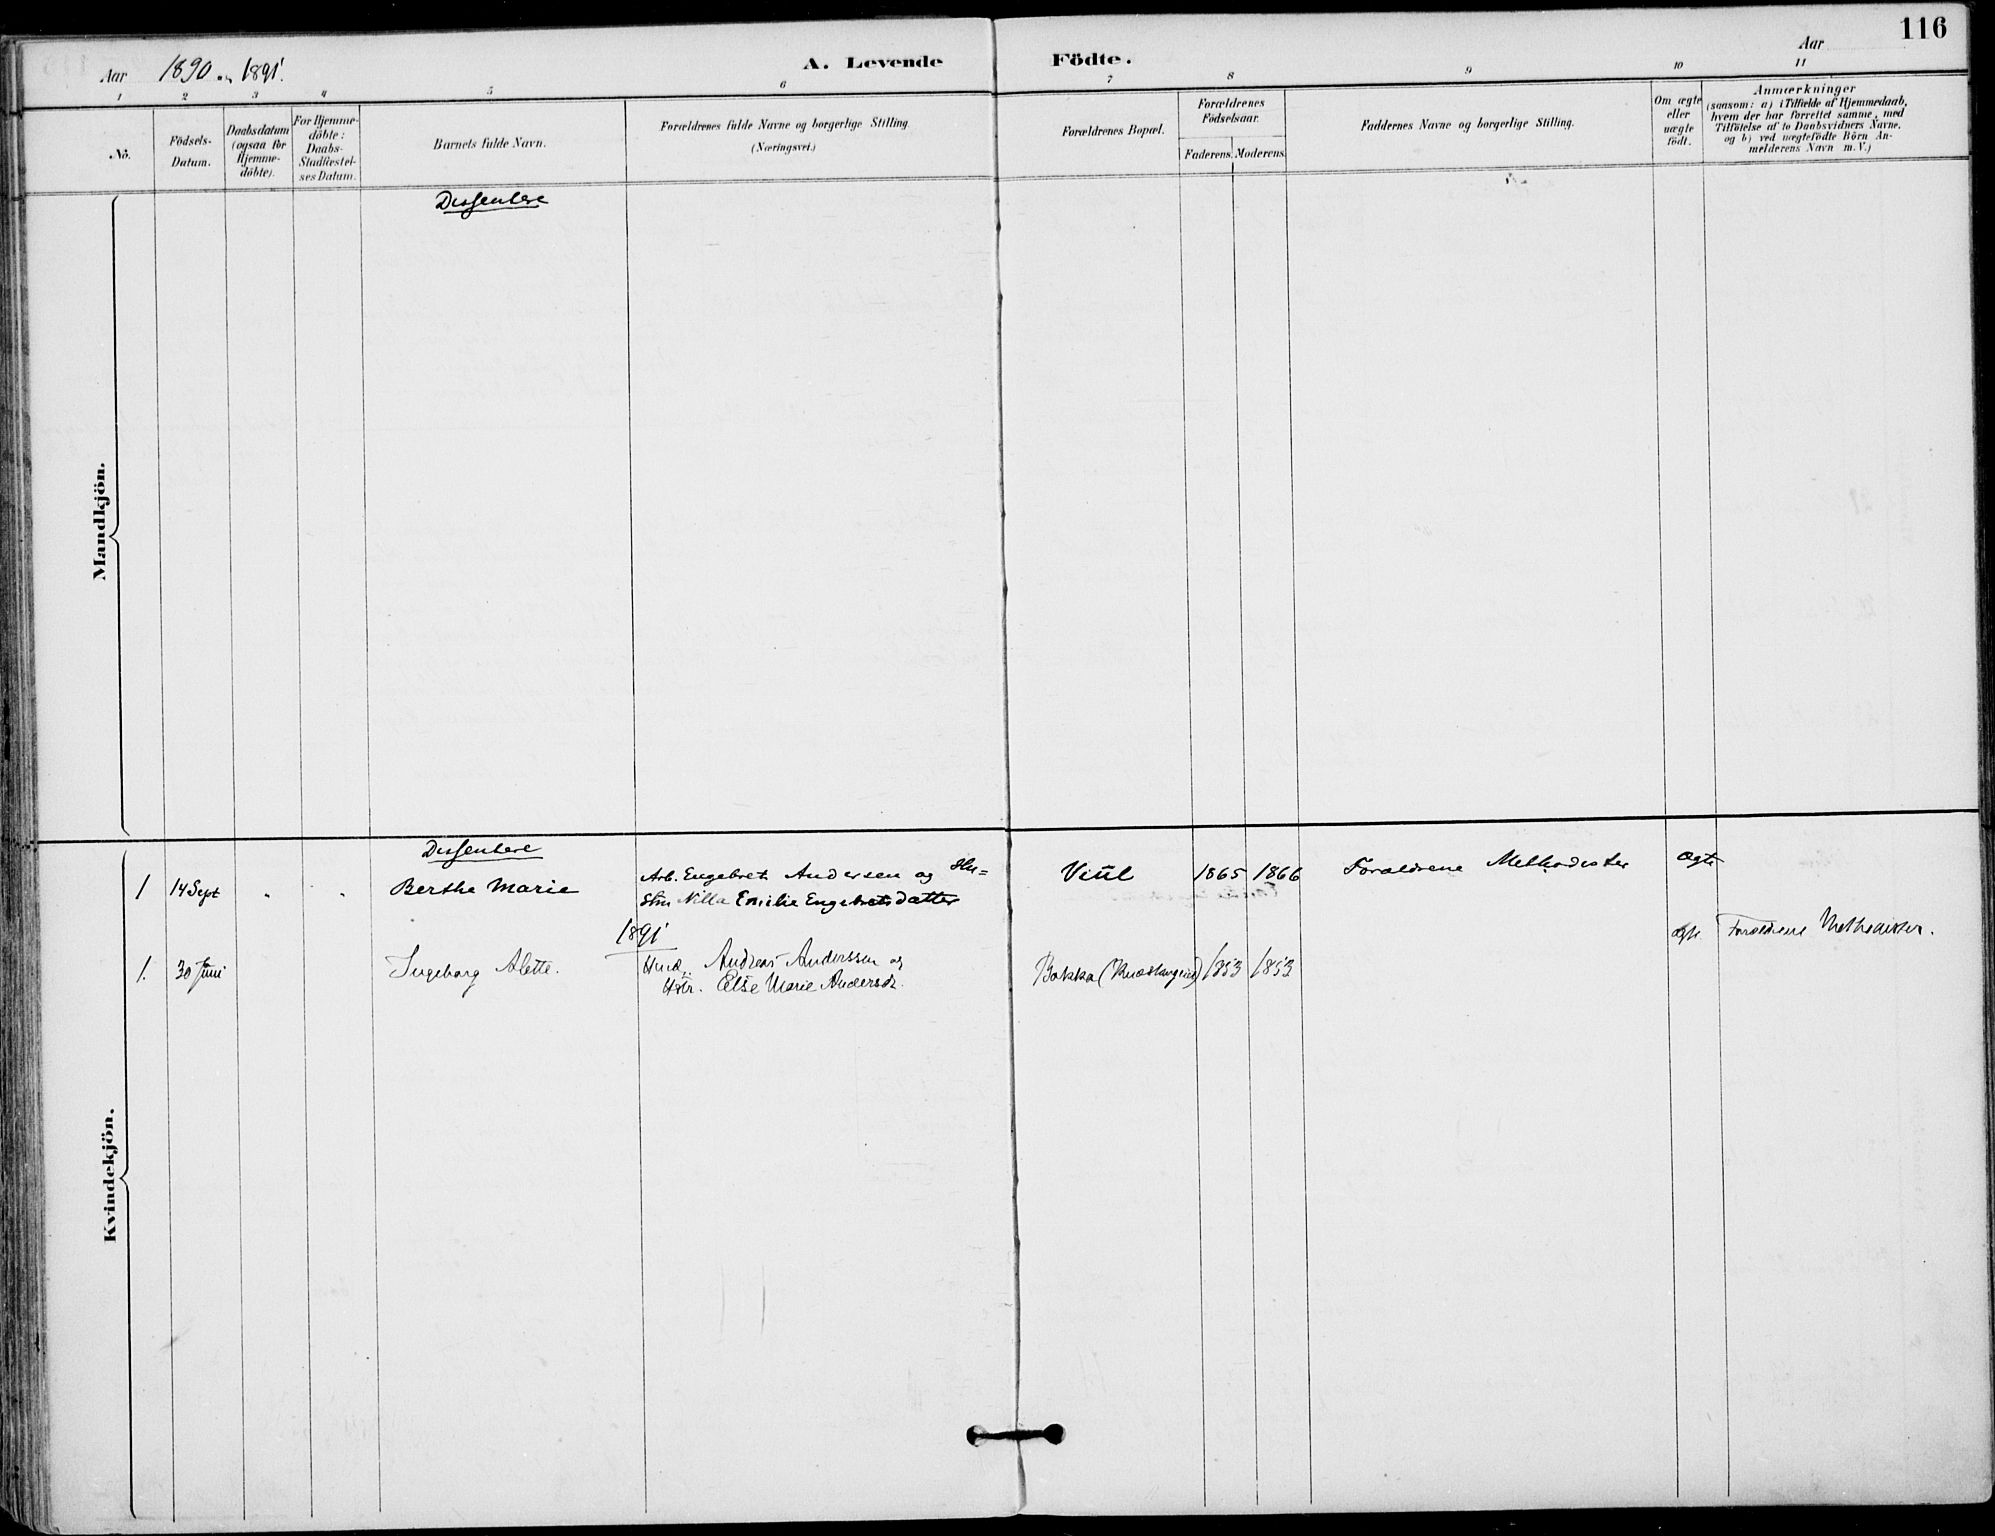 116
Aar 1890 og 1891.
A. Levende Födte.
Aar
1 2 3 4 5 6 7 8 9 10 11
No.
Födsels-
Datum.
Daabsdatum
(ogsaa for
Hjemme-
döbte).
For Hjemme-
döbte:
Daabs-
Stadfæstel-
ses Datum.
Barnets fulde Navn.
Forældrenes fulde Navne og borgerlige Stilling
(Næringsvei.)
Forældrenes Bopæl.
Forældrenes
Födselsaar.
Faderens.
Moderens.
Faddernes Navne og borgerlige Stilling.
Om ægte
eller
uægte
födt.
Anmærkninger
(saasom: a) i Tilfælde af Hjemmedaab,
hvem der har forrettet samme, med
Tilföielse af to Daabsvidners Navne,
og b) ved uægtefödte Börn An-
melderens Navn m. V.)
Mandkjön.
Dissentere
Kvindekjön.
Dissentere
1 14 Sept " " Berthe Marie Arb. Engebret Andersen og Hu=
stru Nilla Emilie Engebretsdatter
Viul 1865 1866 Forældrene Methodister ægte
1891
1. 30 Juni Ingeborg Alette. Andreas Anderssen og
Hstr. Else Marie Andersdr.
Bakka 1853 1853 ægte Forældrene Methodister.